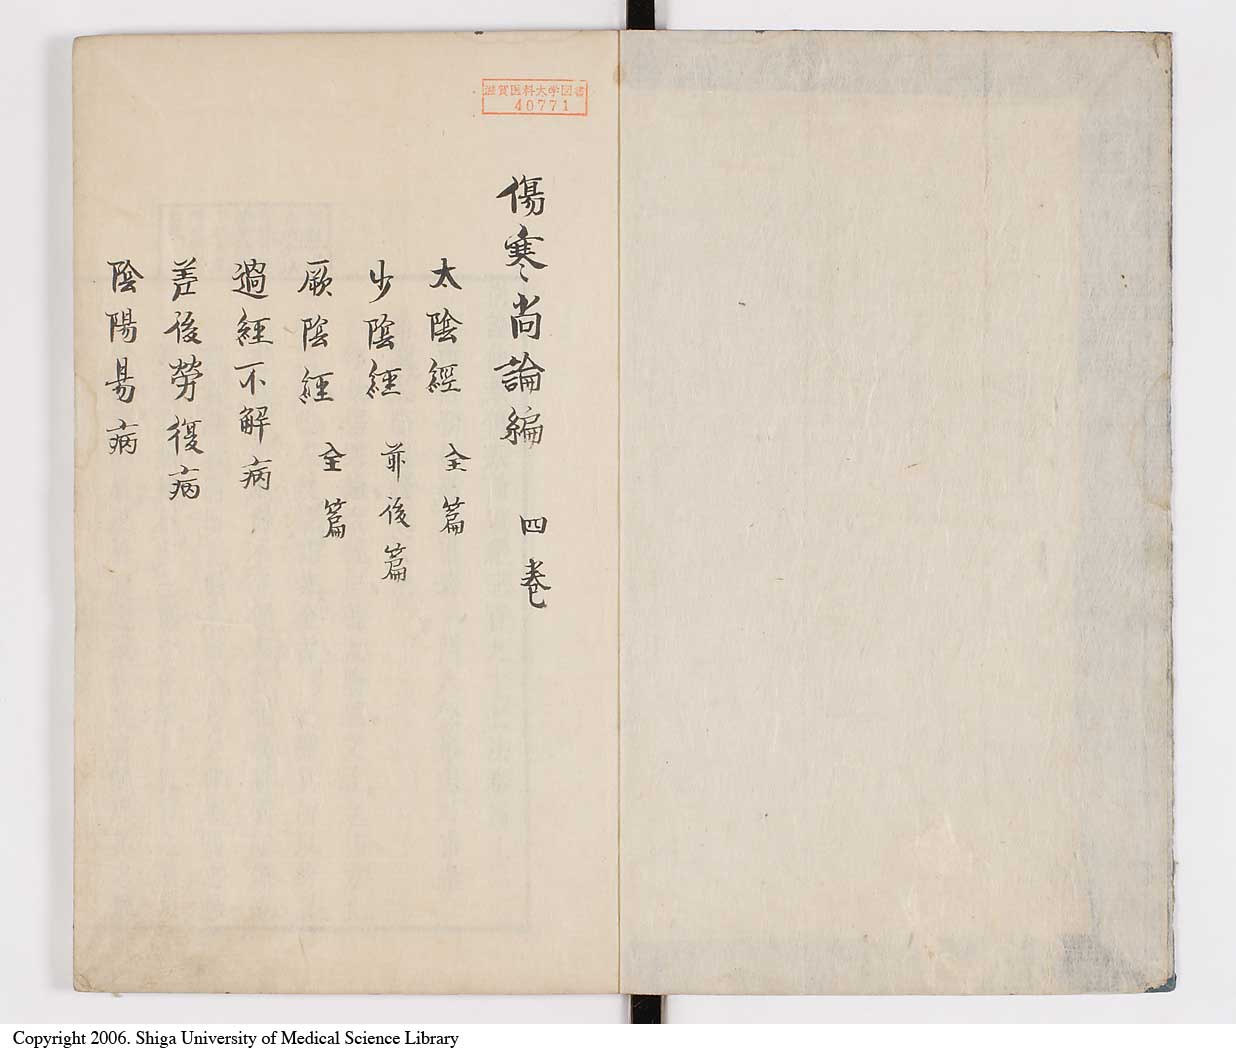 滋賀医科大学図書
40771
傷寒尚論編 四卷
太陰經 全篇
少陰經 前後篇
厥陰經 全篇
過經不解病
差後勞復病
陰陽易病
Copyright 2006. Shiga University of Medical Science Library